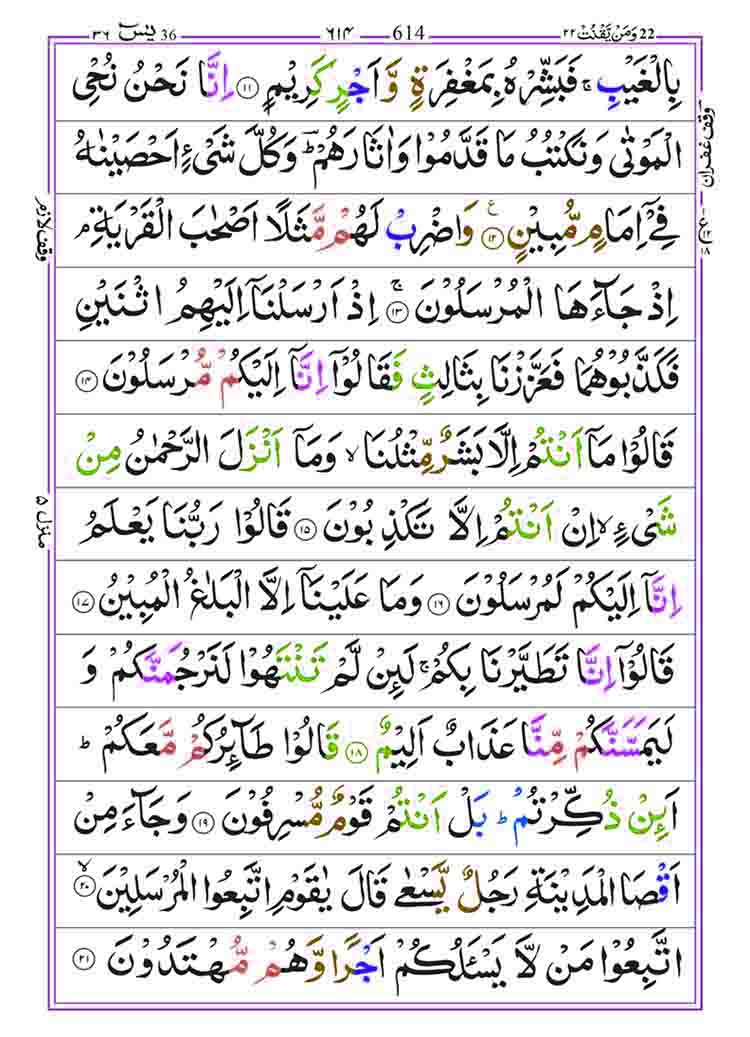 ٣٦ يٰسٓ 36 ٦١٤ 614 وَمَنْ يَّقْنُتْ ٢٢ 22
بِالْغَيْبِ ۚ فَبَشِّرْهُ بِمَغْفِرَةٍ وَّاَجْرٍ كَرِيْمٍ ۝١١ اِنَّا نَحْنُ نُحْيِ
الْمَوْتٰى وَنَكْتُبُ مَا قَدَّمُوْا وَاٰثَارَهُمْ ؕ وَكُلَّ شَىْءٍ اَحْصَيْنٰهُ
فِىْۤ اِمَامٍ مُّبِيْنٍ ۝١٢ ع وَاضْرِبْ لَهُمْ مَّثَلًا اَصْحٰبَ الْقَرْيَةِ ۘ
اِذْ جَآءَهَا الْمُرْسَلُوْنَ ۝١٣ ۚ اِذْ اَرْسَلْنَاۤ اِلَيْهِمُ اثْنَيْنِ
فَكَذَّبُوْهُمَا فَعَزَّزْنَا بِثَالِثٍ فَقَالُوْۤا اِنَّاۤ اِلَيْكُمْ مُّرْسَلُوْنَ ۝١٤
قَالُوْا مَاۤ اَنْتُمْ اِلَّا بَشَرٌ مِّثْلُنَا ۙ وَمَاۤ اَنْزَلَ الرَّحْمٰنُ مِنْ
شَىْءٍ ۙ اِنْ اَنْتُمْ اِلَّا تَكْذِبُوْنَ ۝١٥ قَالُوْا رَبُّنَا يَعْلَمُ
اِنَّاۤ اِلَيْكُمْ لَمُرْسَلُوْنَ ۝١٦ وَمَا عَلَيْنَاۤ اِلَّا الْبَلٰغُ الْمُبِيْنُ ۝١٧
قَالُوْۤا اِنَّا تَطَيَّرْنَا بِكُمْ ۚ لَئِنْ لَّمْ تَنْتَهُوْا لَنَرْجُمَنَّكُمْ وَ
لَيَمَسَّنَّكُمْ مِّنَّا عَذَابٌ اَلِيْمٌ ۝١٨ قَالُوْا طَآئِرُكُمْ مَّعَكُمْ ؕ
اَئِنْ ذُكِّرْتُمْ ؕ بَلْ اَنْتُمْ قَوْمٌ مُّسْرِفُوْنَ ۝١٩ وَجَآءَ مِنْ
اَقْصَا الْمَدِيْنَةِ رَجُلٌ يَّسْعٰى قَالَ يٰقَوْمِ اتَّبِعُوا الْمُرْسَلِيْنَ ۝٢٠ ۙ
اتَّبِعُوْا مَنْ لَّا يَسْئَلُكُمْ اَجْرًا وَّهُمْ مُّهْتَدُوْنَ ۝٢١
وقف غفران
وقف لازم
منزل ۵